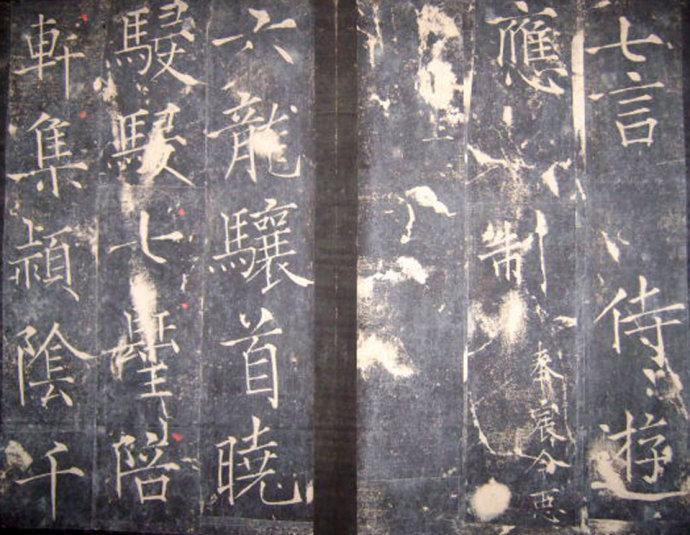 七言侍遊
應制 奉宸令
六龍驤首曉
駸駸七聖陪
軒集潁陰千